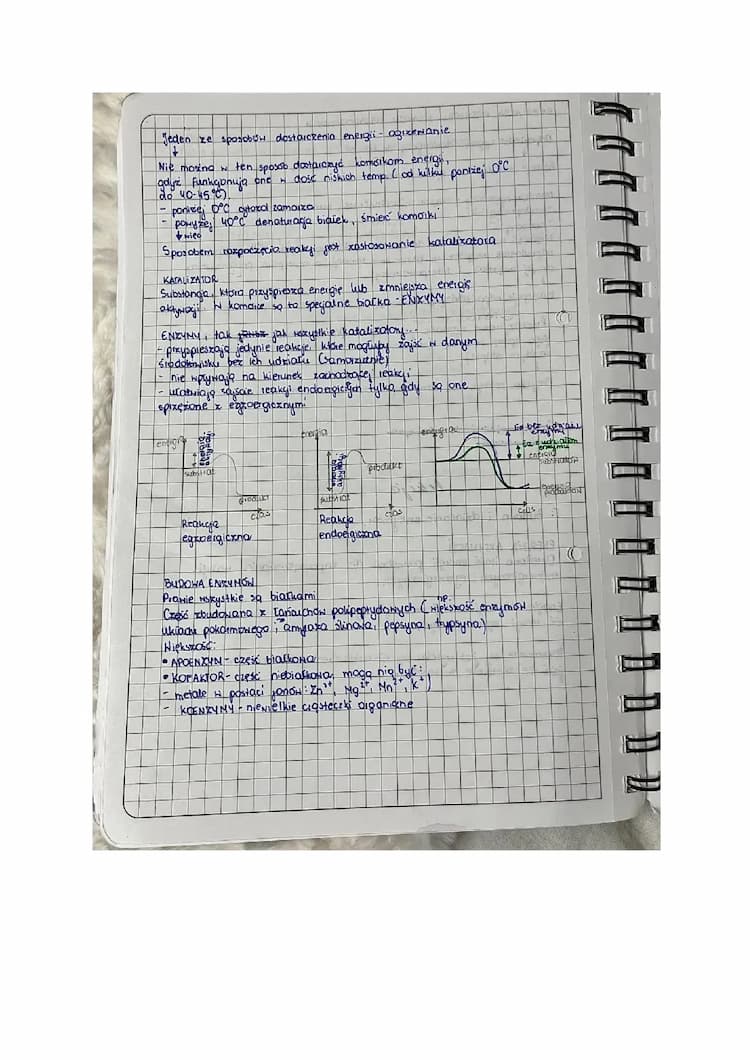 Jeden ze sposobów dostarczenia energii - ogrzewanie
↓
Nie można w ten sposób dostarczyć komórkom energii,
gdyż funkcjonują one w dość niskich temp. (od kilku poniżej 0°C
do 40-45°C)
- poniżej 0°C cytozol zamarza
- powyżej 40°C denaturacja białek, śmierć komórki
↓ więc
Sposobem rozpoczęcia reakcji jest zastosowanie katalizatora
KATALIZATOR
Substancja, która przyspiesza energię lub zmniejsza energię
aktywacji. W komórce są to specjalne białka - ENZYMY
ENZYMY, tak jak wszystkie katalizatory...
- przyspieszają jedynie reakcje, które mogłyby zajść w danym
środowisku bez ich udziału (samorzutnie)
- nie wpływają na kierunek zachodzącej reakcji
- ułatwiają zajście reakcji endoergicznych tylko, gdy są one
sprzężone z egzoergicznymi
energia
substrat
produkt
czas
Reakcja
egzoergiczna
energia
substrat
produkt
czas
Reakcja
endoergiczna
energia
Ea bez udziału
enzymu
Ea z udziałem
enzymu
energia
substratów
produktów
czas
BUDOWA ENZYMÓW
Prawie wszystkie są białkami
Część zbudowana z łańcuchów polipeptydowych (np. większość enzymów
układu pokarmowego, amylaza ślinowa, pepsyna, trypsyna)
Większość:
• APOENZYM - część białkowa
• KOFAKTOR - część niebiałkowa, mogą nią być:
- metale w postaci jonów: Zn²⁺, Mg²⁺, Mn²⁺, K⁺)
- KOENZYMY - niewielkie cząsteczki organiczne